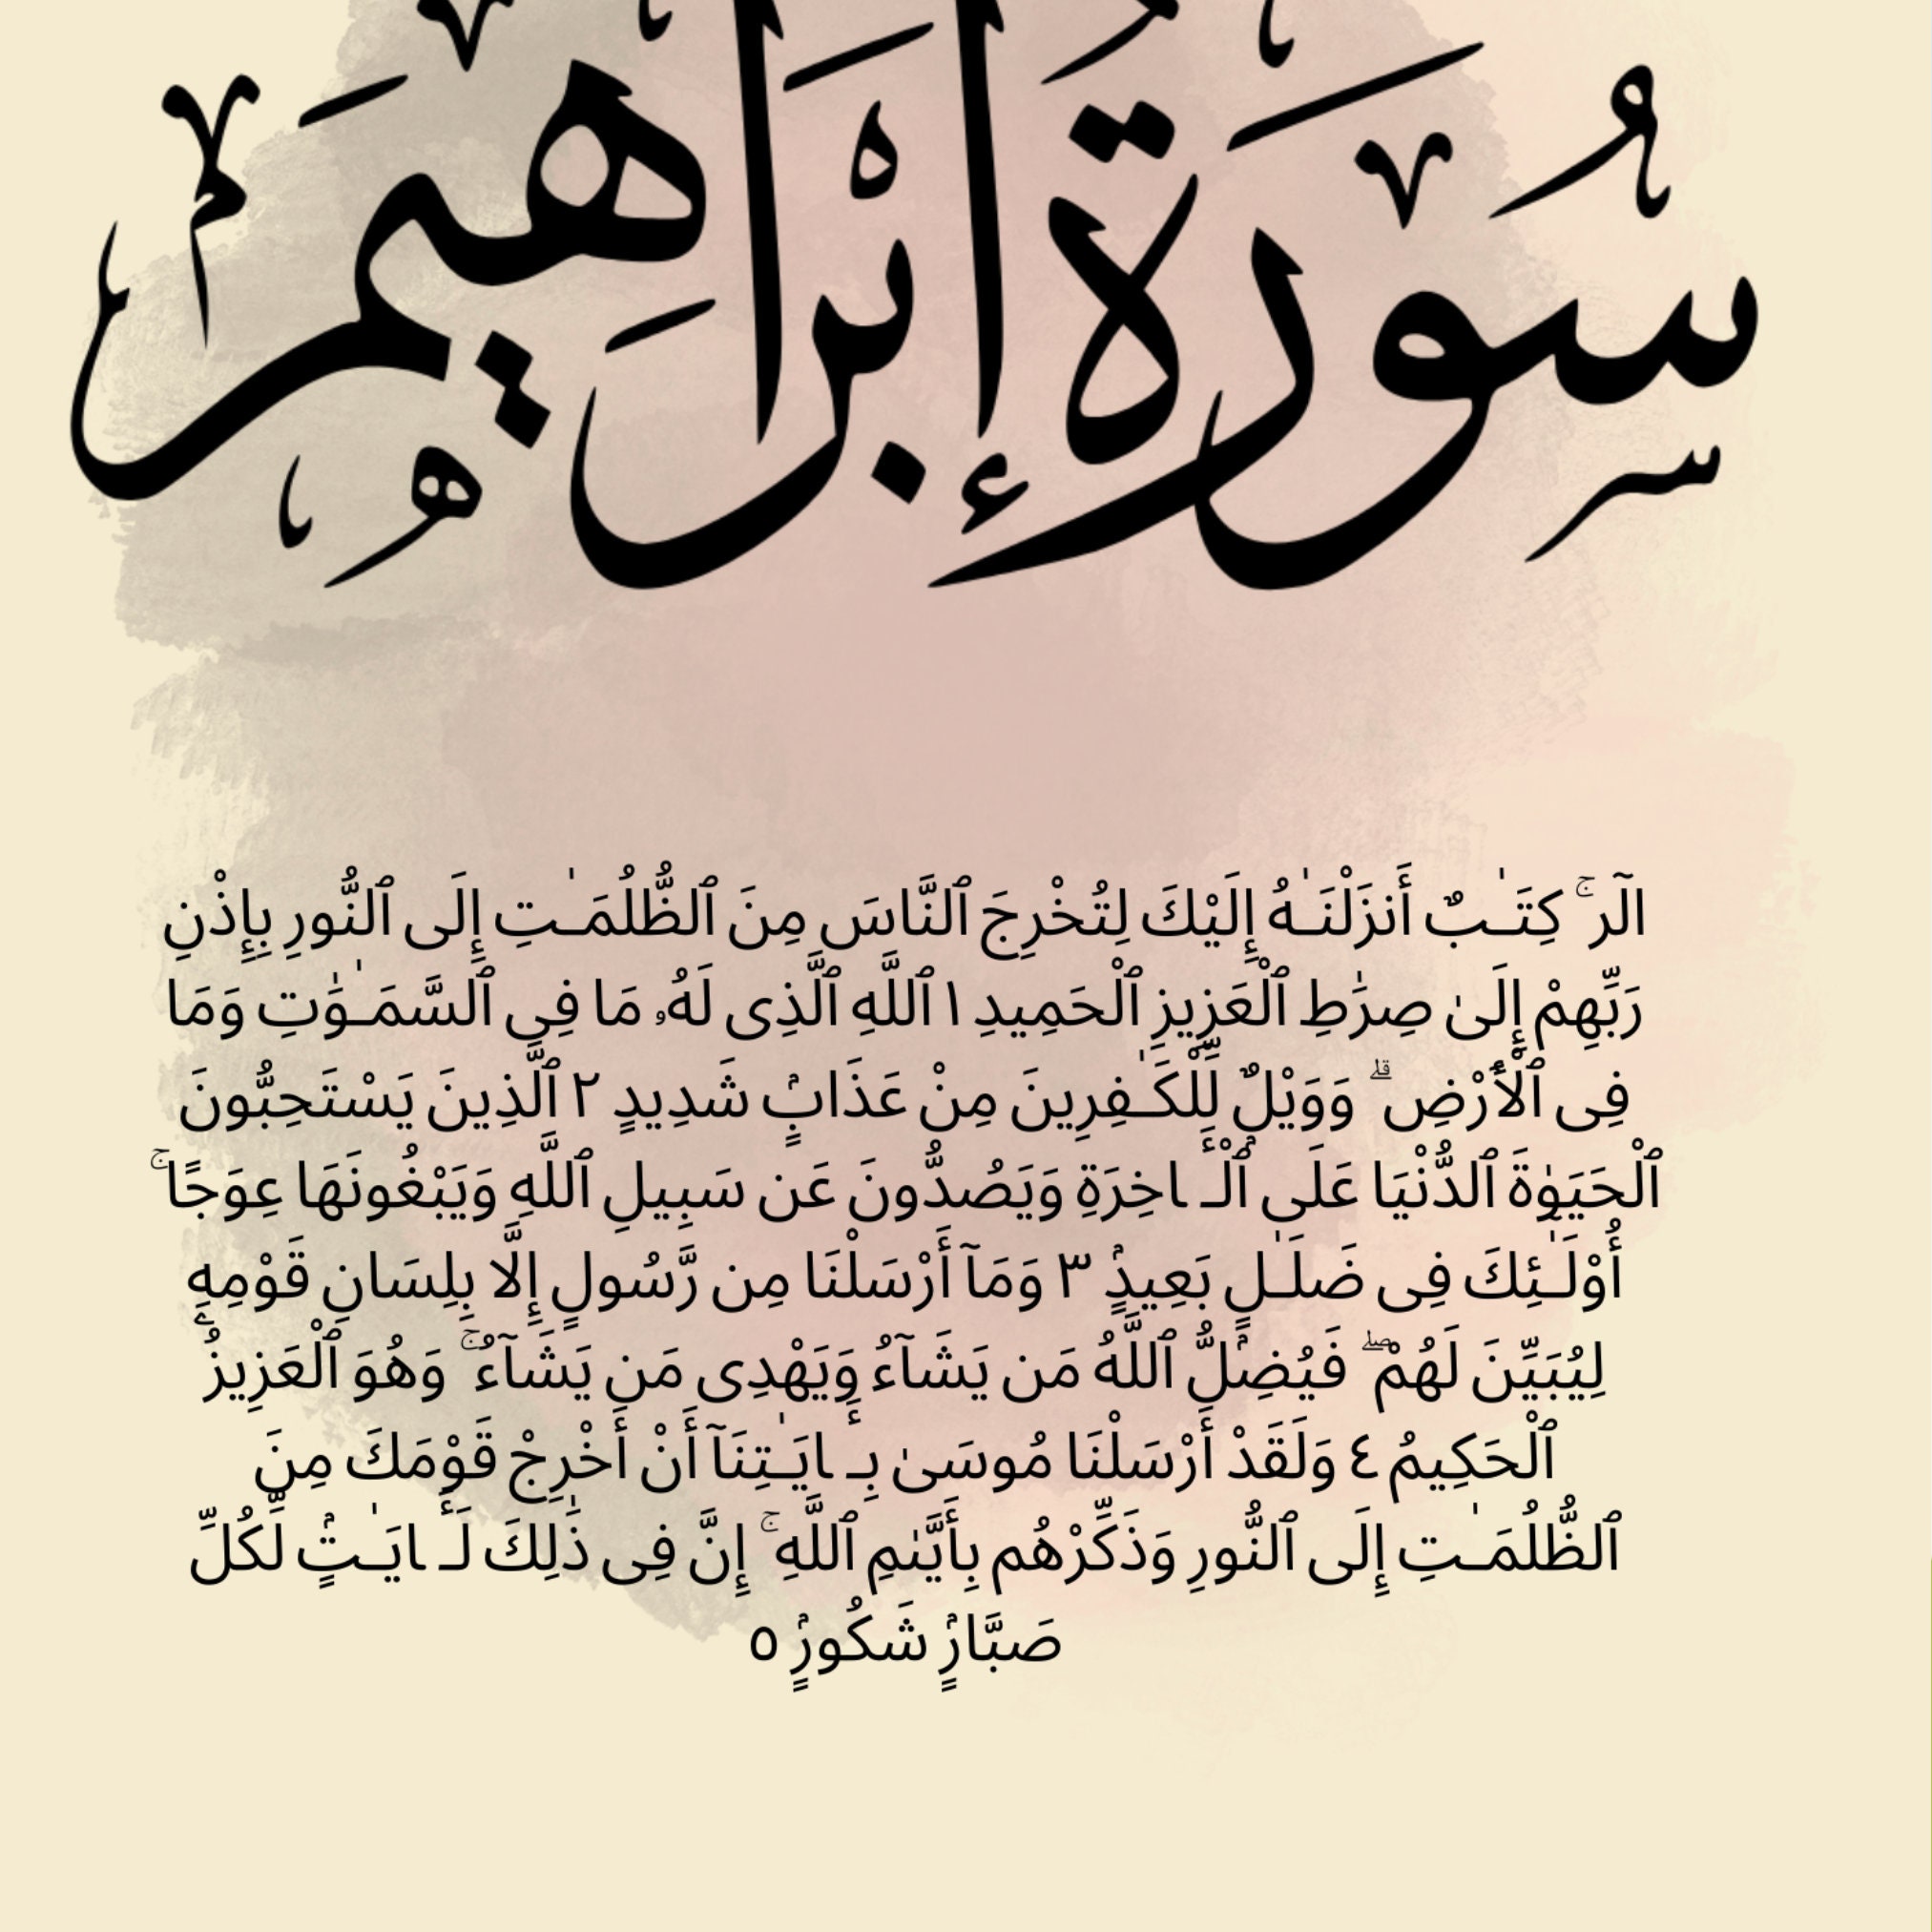 سُورَةُ إِبْرَاهِيمَ
الٓر ۚ كِتَـٰبٌ أَنزَلْنَـٰهُ إِلَيْكَ لِتُخْرِجَ ٱلنَّاسَ مِنَ ٱلظُّلُمَـٰتِ إِلَى ٱلنُّورِ بِإِذْنِ
رَبِّهِمْ إِلَىٰ صِرَٰطِ ٱلْعَزِيزِ ٱلْحَمِيدِ ١ ٱللَّهِ ٱلَّذِى لَهُۥ مَا فِى ٱلسَّمَـٰوَٰتِ وَمَا
فِى ٱلْأَرْضِ ۗ وَوَيْلٌ لِّلْكَـٰفِرِينَ مِنْ عَذَابٍۢ شَدِيدٍ ٢ ٱلَّذِينَ يَسْتَحِبُّونَ
ٱلْحَيَوٰةَ ٱلدُّنْيَا عَلَى ٱلْـَٔاخِرَةِ وَيَصُدُّونَ عَن سَبِيلِ ٱللَّهِ وَيَبْغُونَهَا عِوَجًا ۚ
أُو۟لَـٰٓئِكَ فِى ضَلَـٰلٍۭ بَعِيدٍۢ ٣ وَمَآ أَرْسَلْنَا مِن رَّسُولٍ إِلَّا بِلِسَانِ قَوْمِهِۦ
لِيُبَيِّنَ لَهُمْ ۖ فَيُضِلُّ ٱللَّهُ مَن يَشَآءُ وَيَهْدِى مَن يَشَآءُ ۚ وَهُوَ ٱلْعَزِيزُ
ٱلْحَكِيمُ ٤ وَلَقَدْ أَرْسَلْنَا مُوسَىٰ بِـَٔايَـٰتِنَآ أَنْ أَخْرِجْ قَوْمَكَ مِنَ
ٱلظُّلُمَـٰتِ إِلَى ٱلنُّورِ وَذَكِّرْهُم بِأَيَّىٰمِ ٱللَّهِ ۚ إِنَّ فِى ذَٰلِكَ لَـَٔايَـٰتٍۢ لِّكُلِّ
صَبَّارٍۢ شَكُورٍۢ ٥